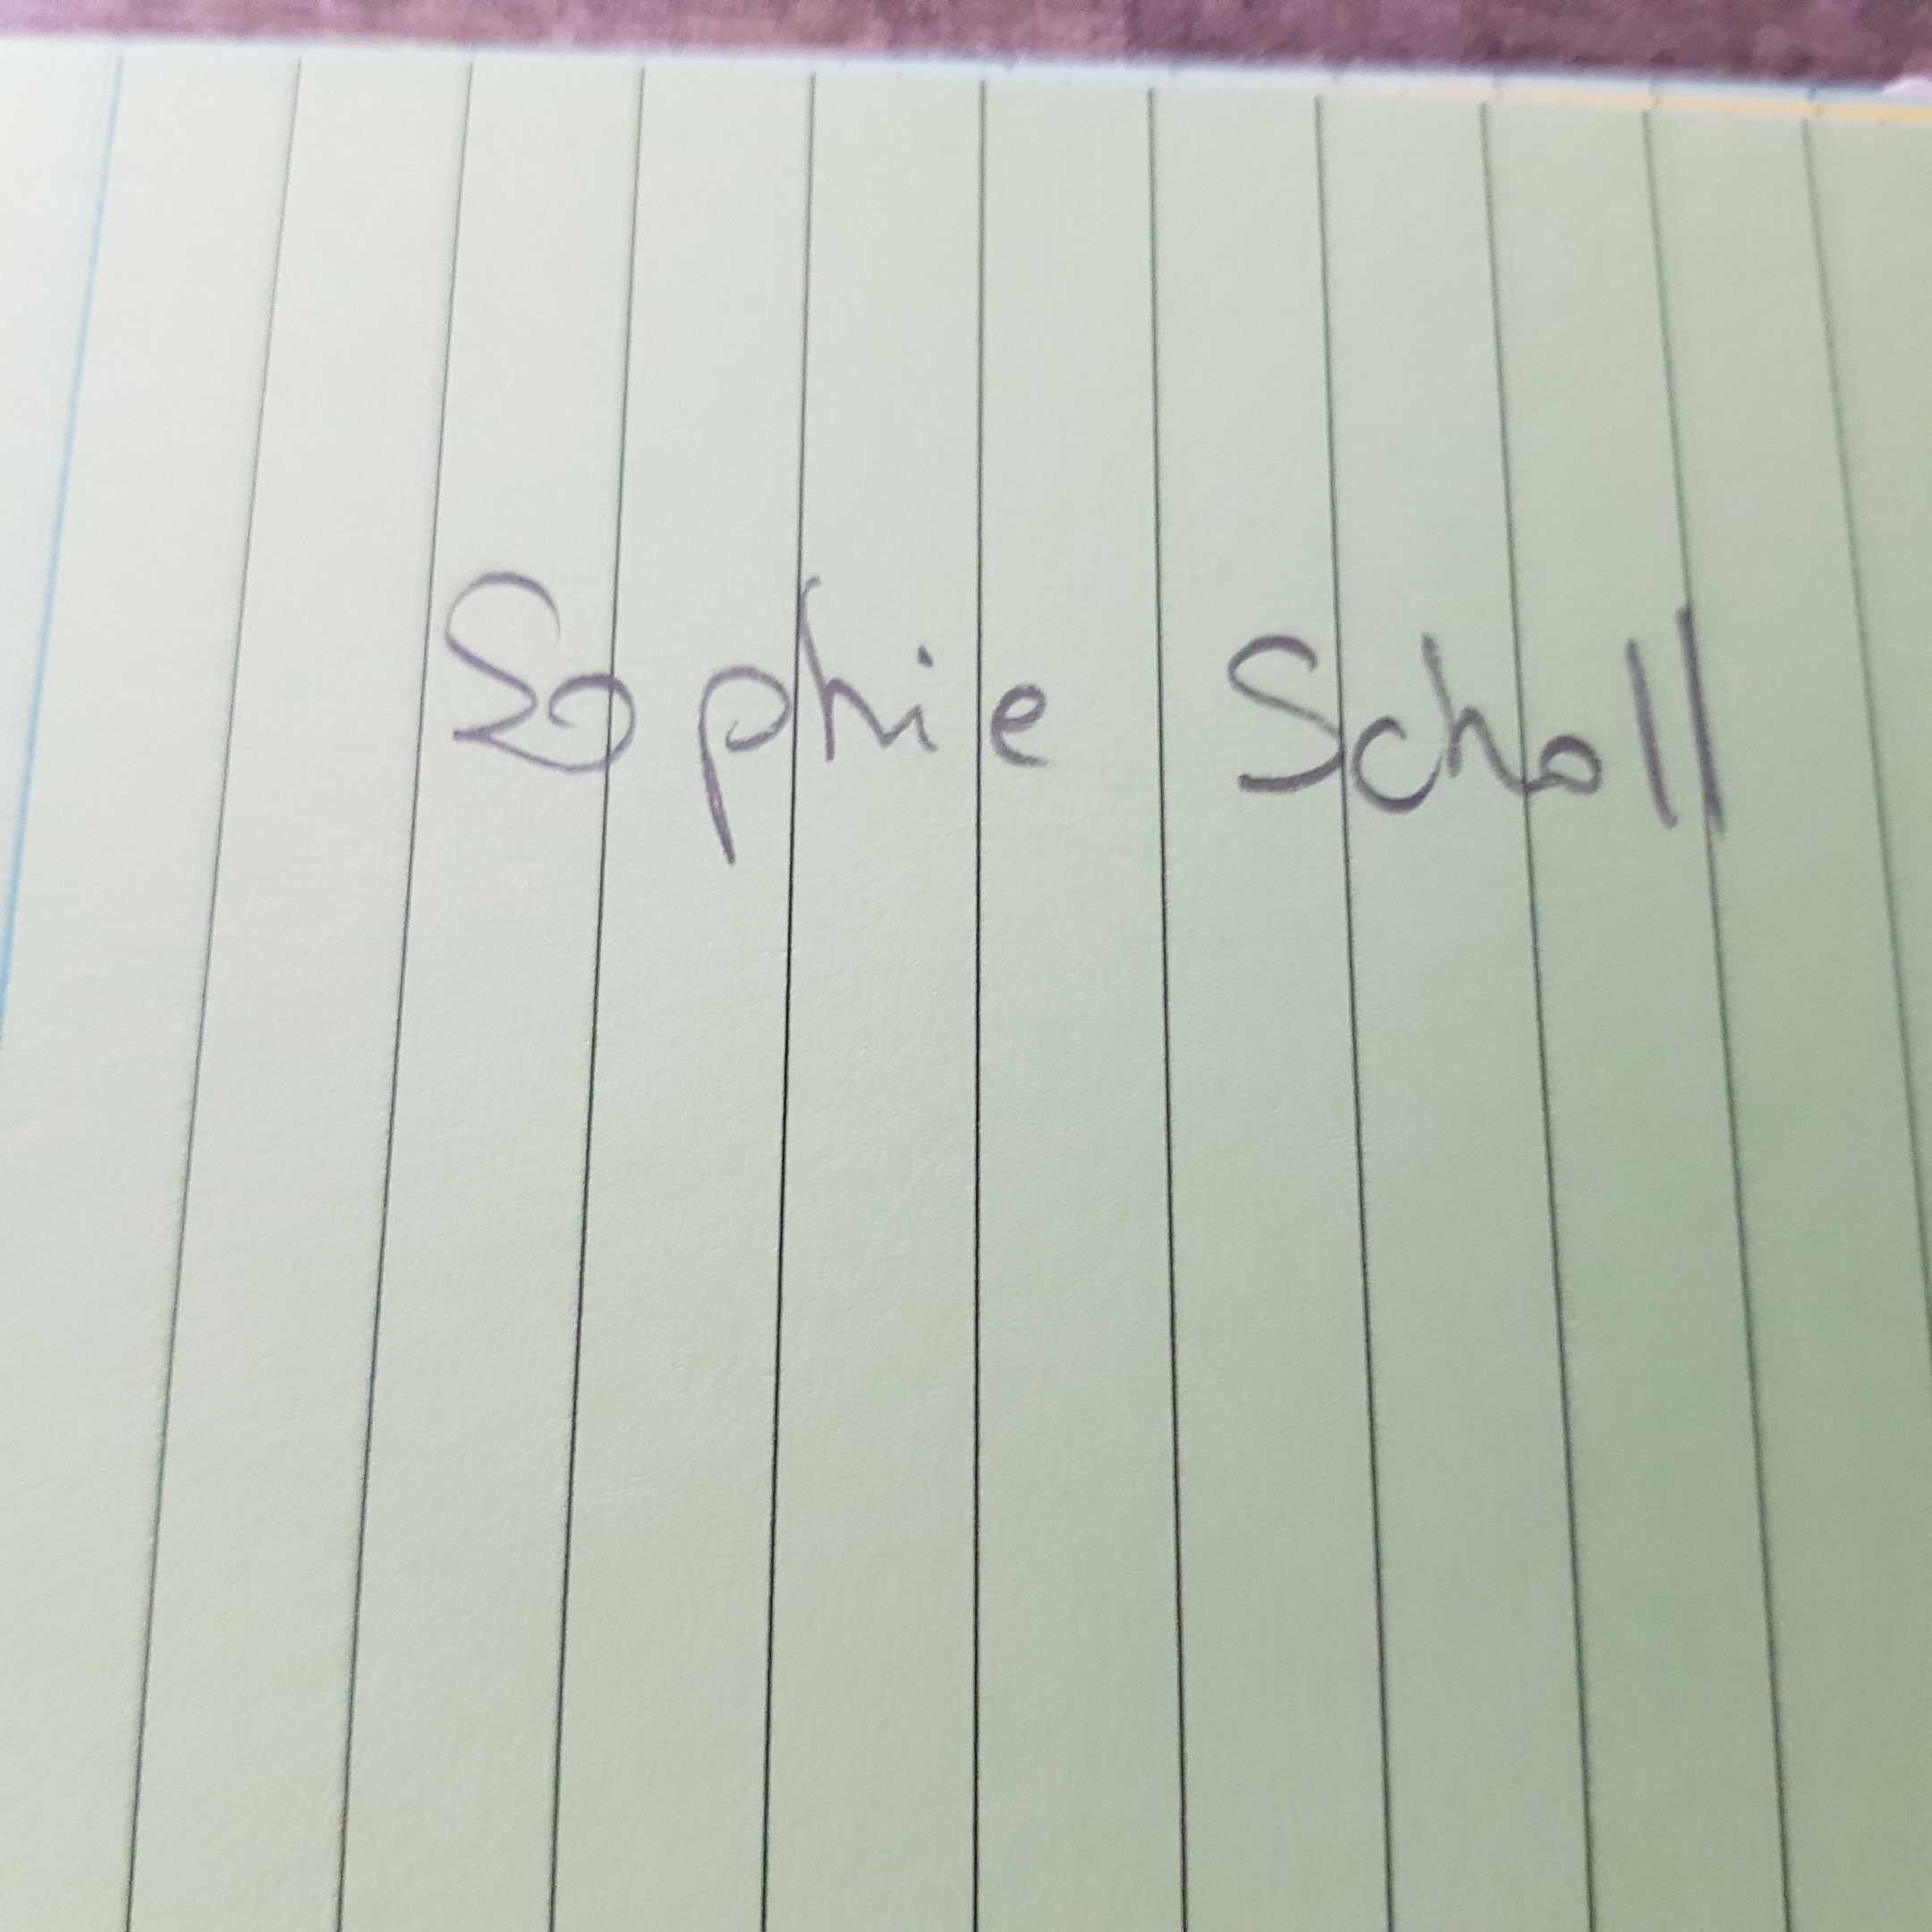 Sophie Scholl